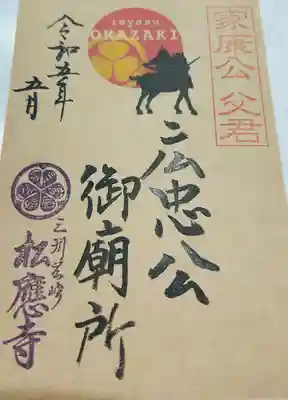 家康公 父君
ieyasu
OKAZAKI
広忠公
御廟所
令和五年
五月
三州岡崎
松應寺